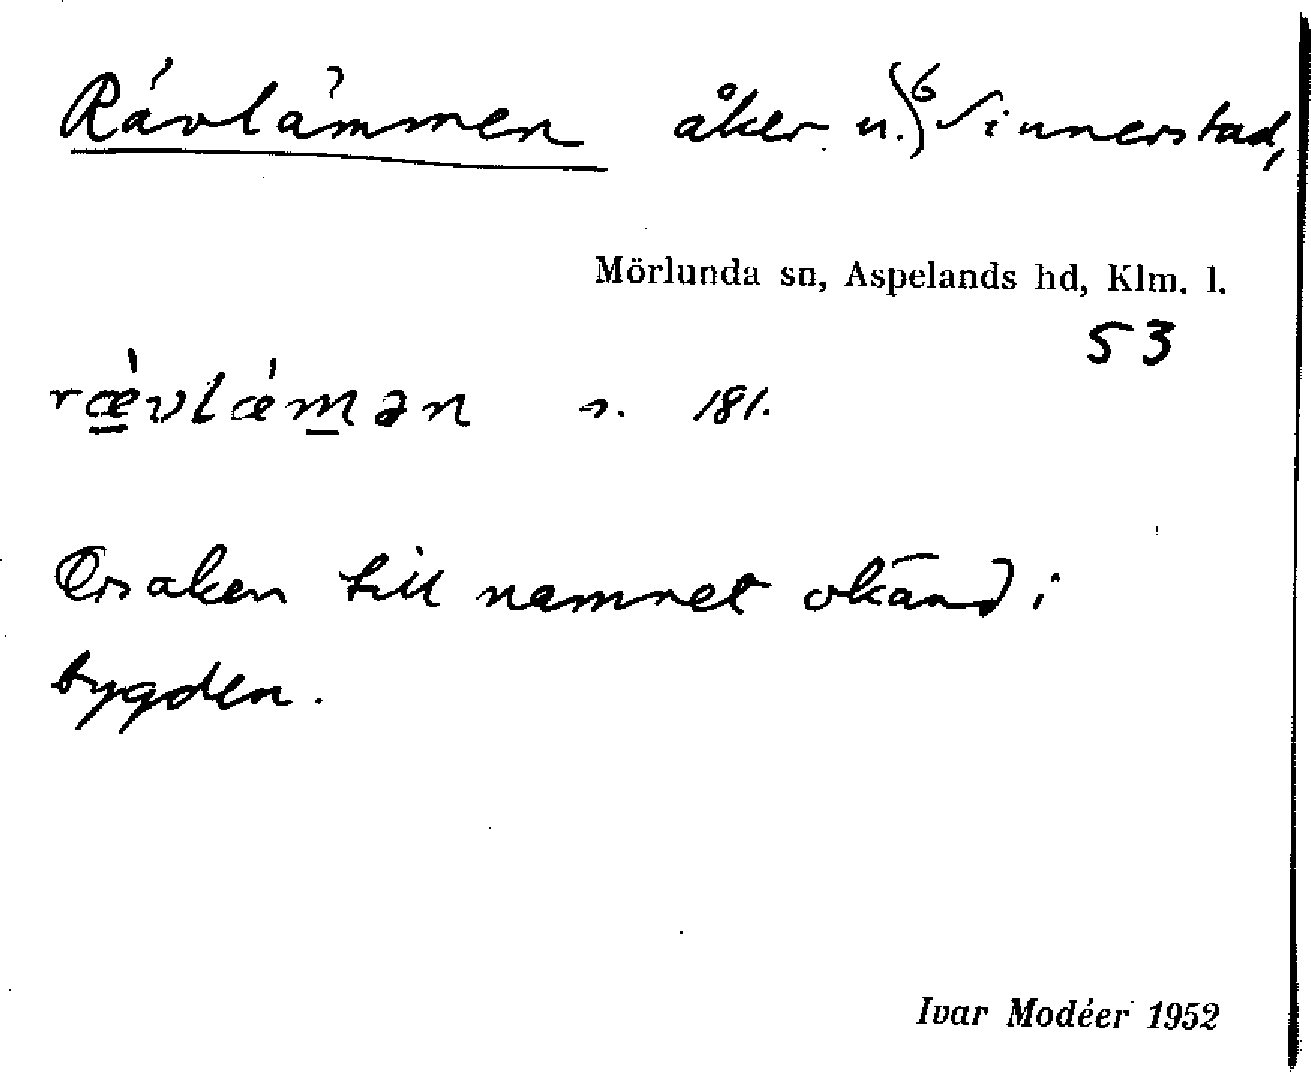 Rävlämmen åker u. 6 Sinnerstad,
Mörlunda sn, Aspelands hd, Klm. l.
53
rævlæmən s. 181.
Orsaken till namnet okänd i
bygden.
Ivar Modéer 1952